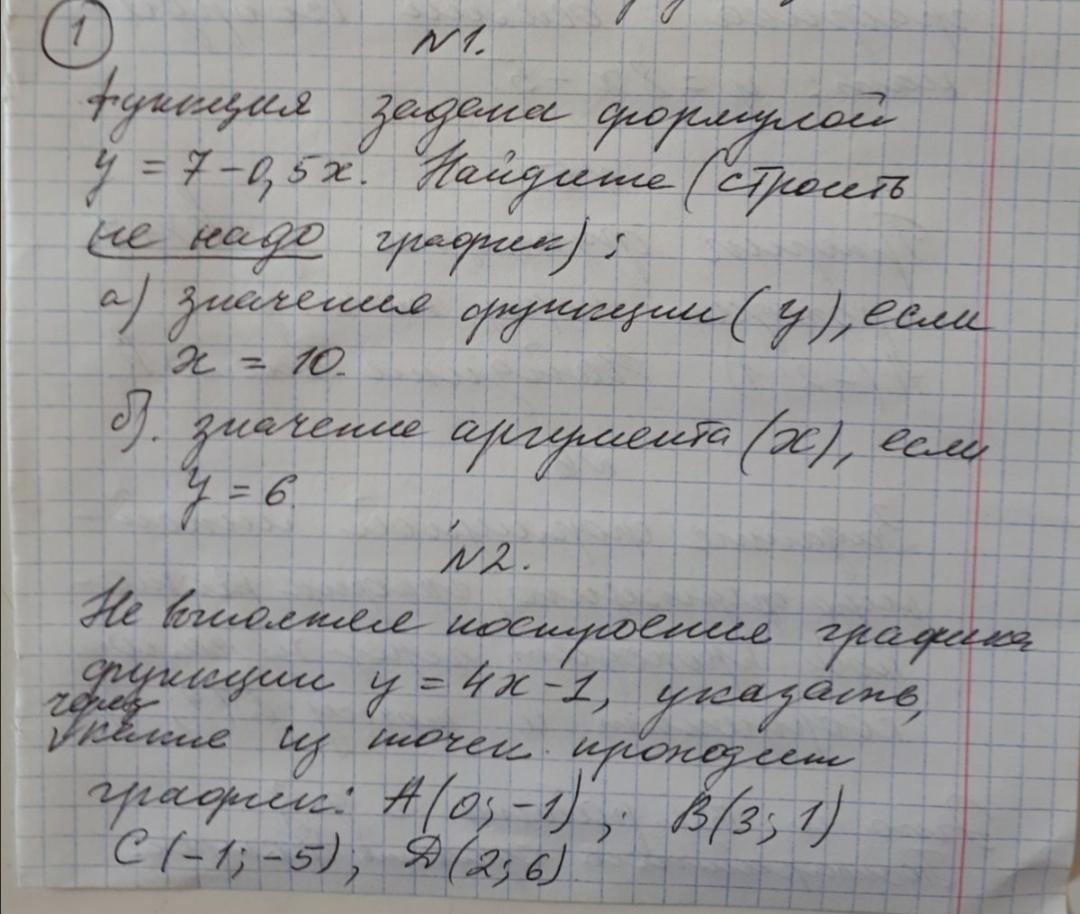 1
N1.
функция задана формулой
y = 7 - 0,5x. Найдите (строить
не надо график) :
а) значения функции (y), если
x = 10.
б). значение аргумента (x), если
y = 6.
N2.
Не выполняя построения графика
функции y = 4x - 1, указать,
через
какие из точек проходит
график: A(0; -1) ; B(3; 1)
C(-1; -5); D(2; 6)